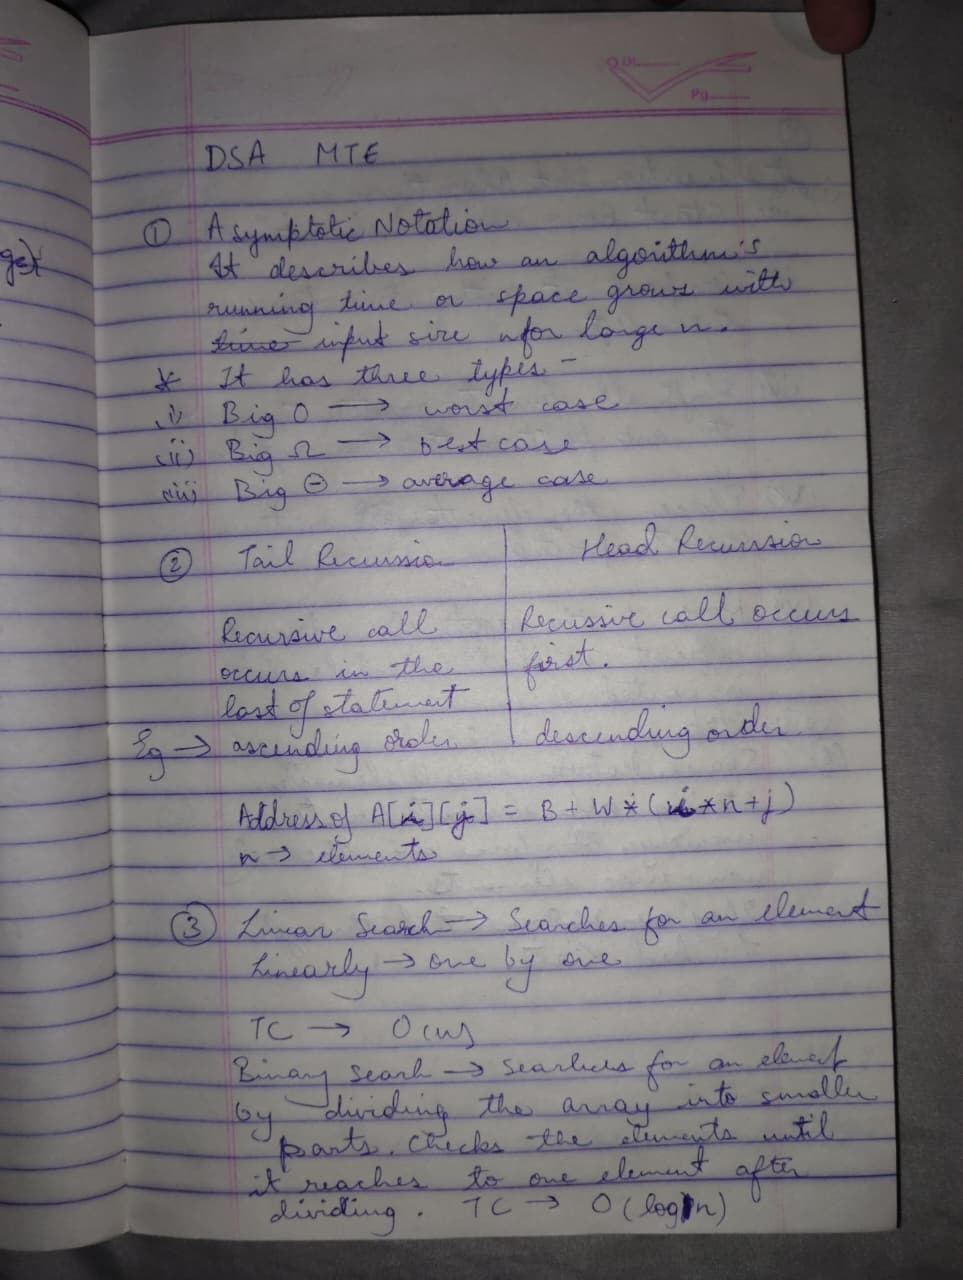 Pg
DSA MTE
① Asymptotic Notation
It describes how an algorithm's
running time or space grows with
time input size n for large n.
* It has three types -
i) Big O → worst case
ii) Big Ω → best case
iii) Big Θ → average case
② Tail Recursion Head Recursion
Recursive call Recussive call occurs
occurs in the first.
last of statement
Eg → ascending order descending order
Address of A[i][j] = B + W * (i * n + j)
n → elements
③ Linear Search → Searches for an element
Linearly → one by one
TC → O(n)
Binary Searh → Searches for an element
by dividing the array into smaller
parts. Checks the elements until
it reaches to one element after
dividing. TC → O(log n)